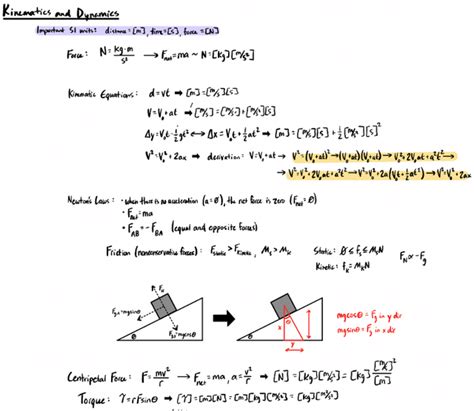 Kinematics and Dynamics
Important SI units: distance=[m], time=[s], force=[N]
Force: N = kg·m/s² → F_net = ma ~ N = [kg][m/s²]
Kinematic Equations: d = vt → [m] = [m/s][s]
V = V₀ + at → [m/s] = [m/s] + [m/s²][s]
Δy = V₀t - ½gt² ↔ Δx = V₀t + ½at² → [m] = [m/s][s] + ½[m/s²][s]²
V² = V₀² + 2ax → derivation: V = V₀ + at → V² = (V₀ + at)² → (V₀ + at)(V₀ + at) → V₀² + 2V₀at + a²t² →
→ V² = V₀² + 2V₀at + a²t² → V² = V₀² + 2a(V₀t + ½at²) → V² = V₀² + 2ax
Newton's Laws: • when there is no acceleration (a = 0), the net force is zero (F_net = 0)
• F_net = ma
• F_AB = -F_BA (equal and opposite forces)
Friction (nonconservative forces): F_static > F_kinetic, μ_s > μ_k
Static: 0 ≤ f_s ≤ μ_sN
Kinetic: f_k = μ_kN
F_N ∝ -F_g
θ
x
θ
y
θ
mgcosθ = F_g in y dir
mgsinθ = F_g in x dir
Centripetal Force: F = mv²/r → F_net = ma, a = v²/r → [N] = [kg][m/s²] = [kg] [m/s]²/[m]
Torque: τ = rFsinθ → [τ] = [m][N] = [m][kg][m/s²] = [kg][m²/s²]